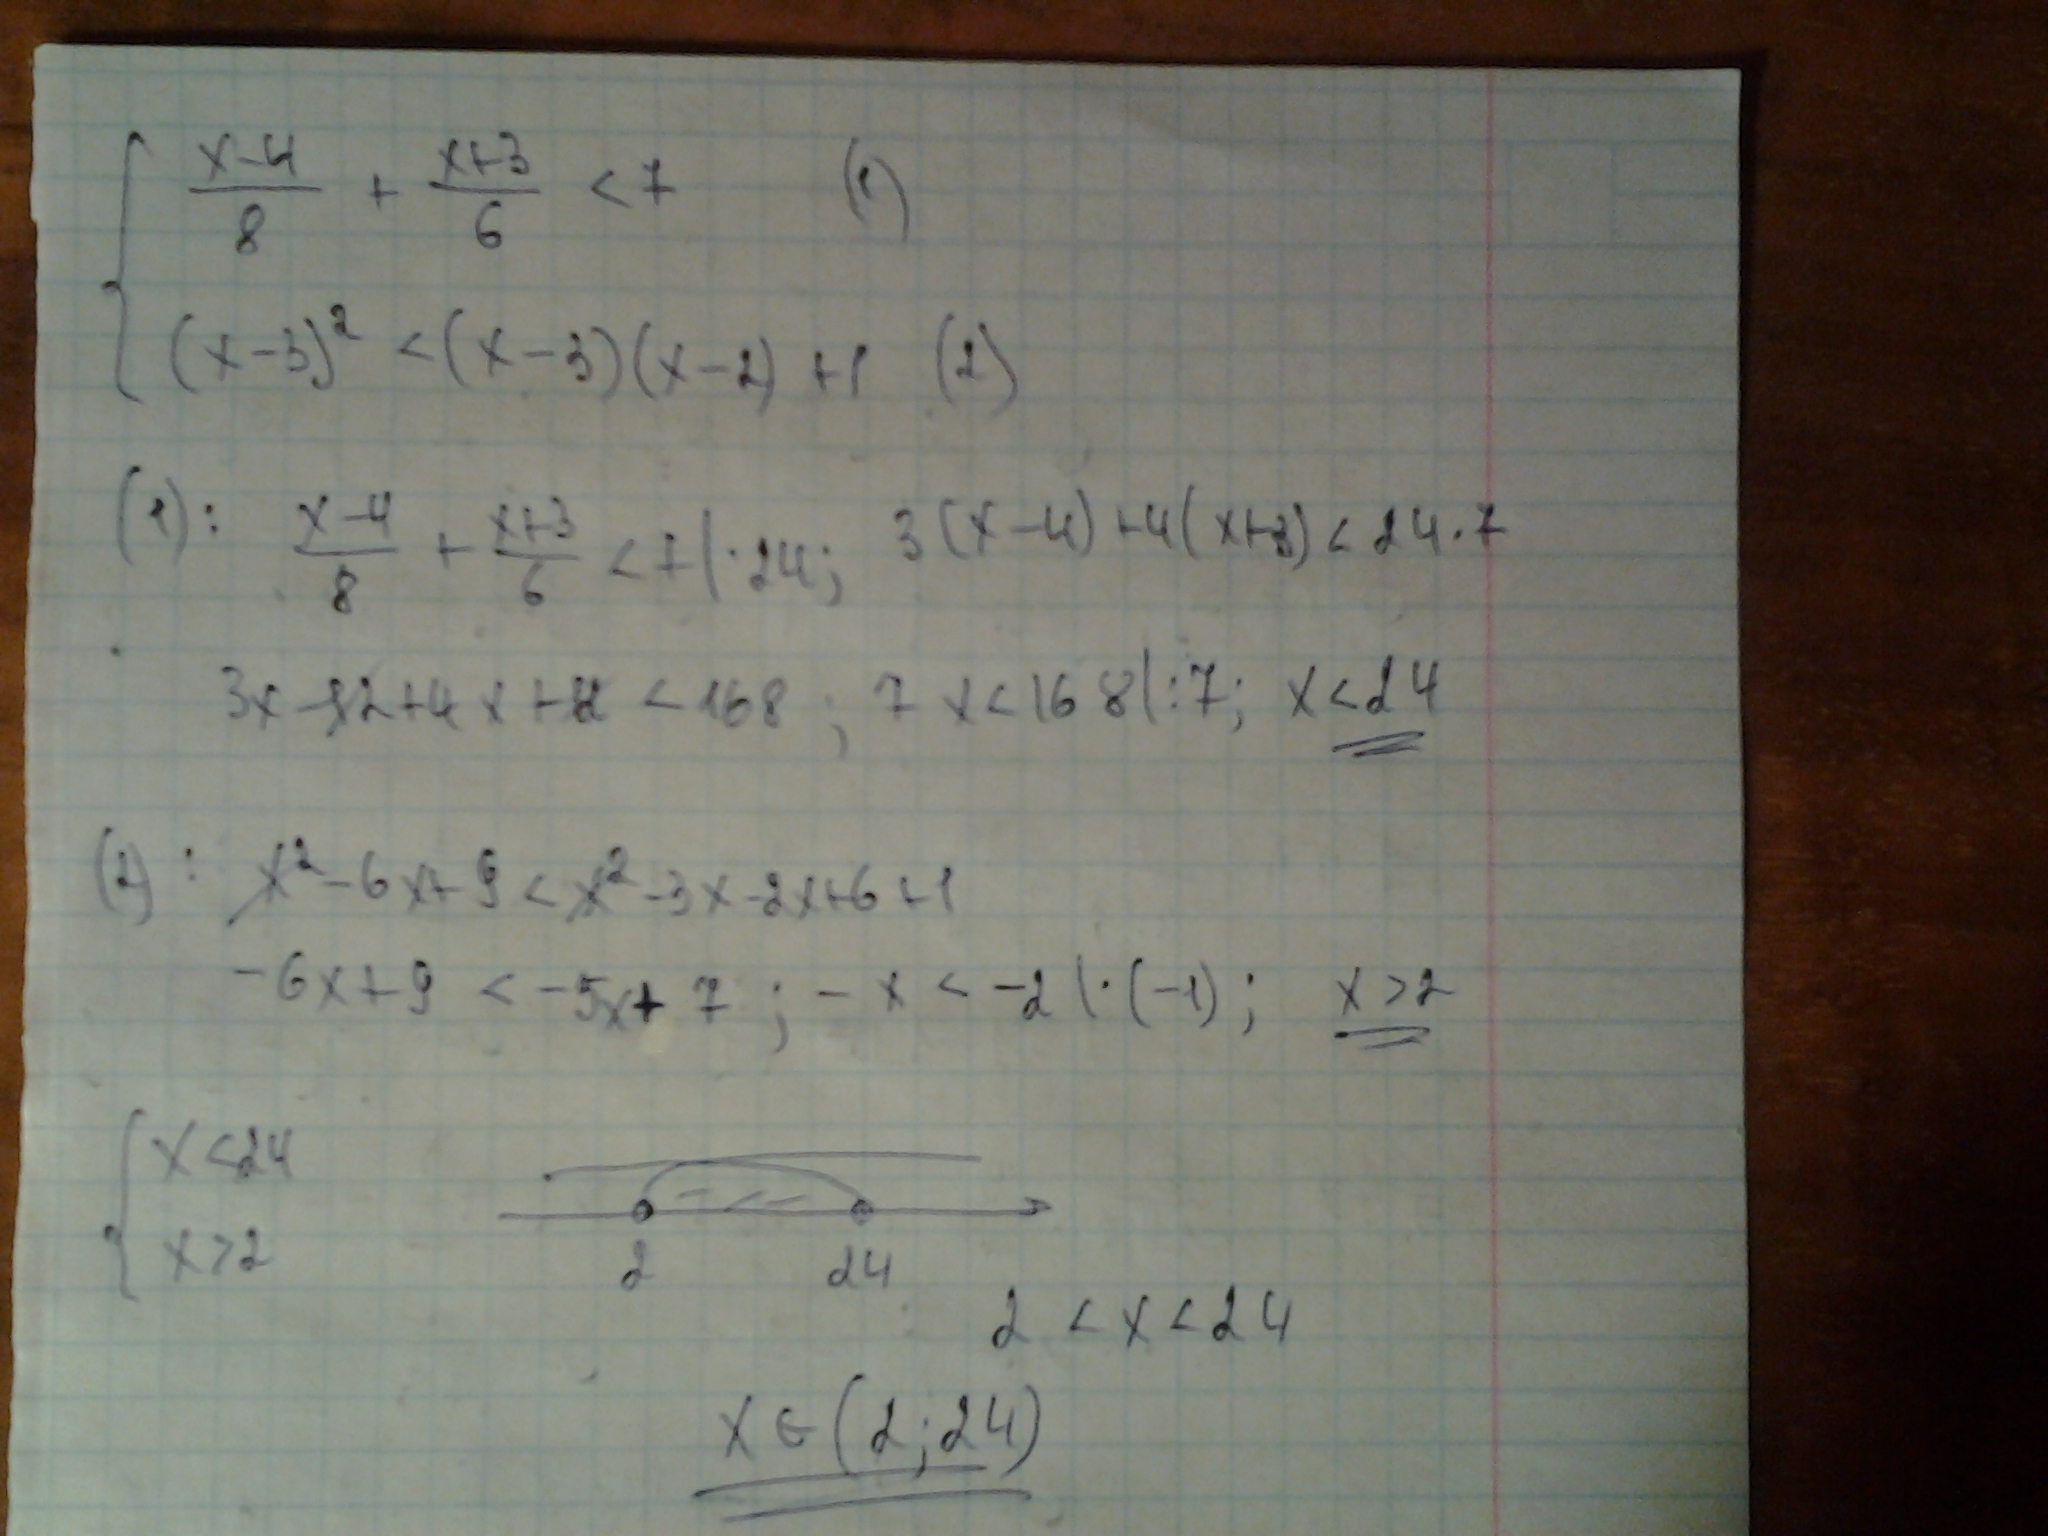 { (x-4)/8 + (x+3)/6 < 7 (1)
(x-3)² < (x-3)(x-2) + 1 (2)
(1): (x-4)/8 + (x+3)/6 < 7 |·24; 3(x-4)+4(x+3) < 24·7
3x-12+4x+12 < 168; 7x<168|:7; x<24
(2): x²-6x+9 < x²-3x-2x+6+1
-6x+9 < -5x+7; -x < -2 |·(-1); x>2
{ x<24
x>2
2 24
2 < x < 24
x∈(2;24)